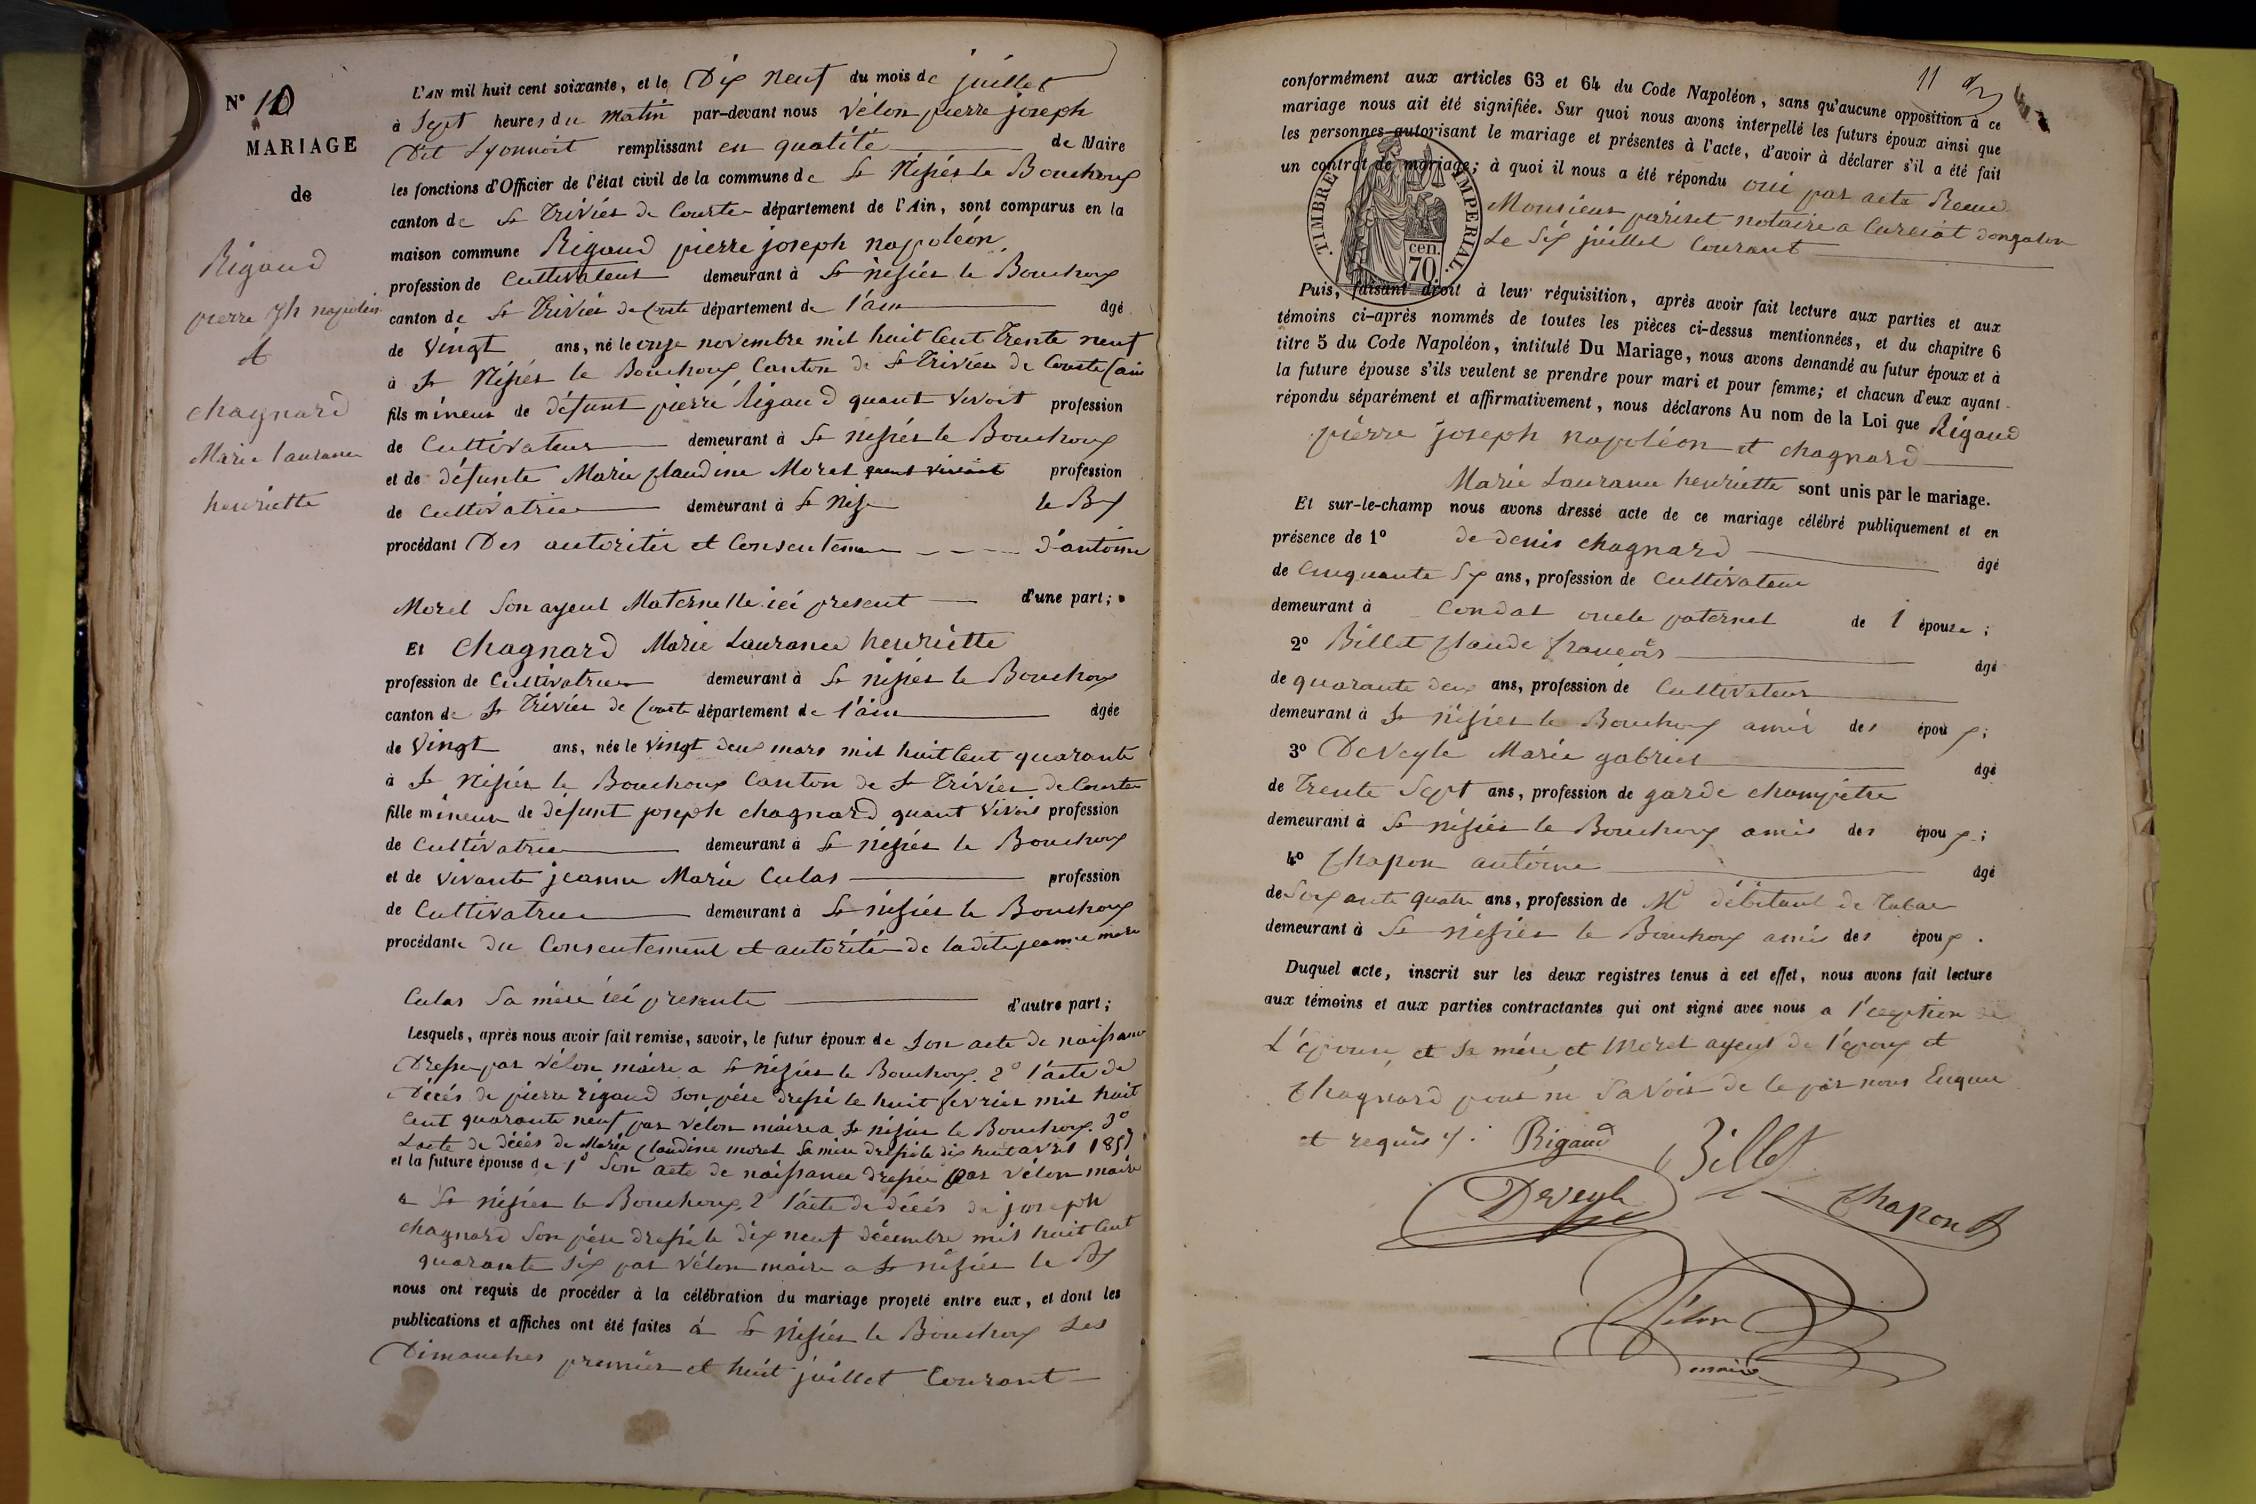 N° 10
MARIAGE
de
Rigaud
pierre jh napoléon
et
chagnard
Marie laurance
henriette
L'AN mil huit cent soixante, et le Dix neuf du mois de juillet
à Sept heures du matin par-devant nous Vélon pierre joseph
Dit Lyonnoit remplissant en qualité de Maire
les fonctions d'Officier de l'état civil de la commune de St Nisiés le Bouchoux
canton de St Triviés de Courtes département de l'Ain, sont comparus en la
maison commune Rigaud pierre joseph napoléon,
profession de Cultivateur demeurant à St nisiés le Bouchoux
canton de St Triviés de Courte département de l'ain âgé
de Vingt ans, né le onze novembre mil huit Cent Trente neuf
à St Nisiés le Bouchoux Canton de St Triviés de Courte (ain
fils mineur de défunt pierre Rigaud quant Vivoit profession
de Cultivateur demeurant à St nisiés le Bouchoux
et de défunte Marie Claudine Morel quant vivoit profession
de Cultivatrice demeurant à St Niz le Bx
procédant Des autoritée et Consentement d'antoine
Morel Son ayeul Maternelle ici present d'une part;
Et Chagnard Marie Laurance henriette
profession de Cultivatrice demeurant à St nisiés le Bouchoux
canton de St Triviés de Courte département de l'ain âgée
de Vingt ans, née le Vingt deux mars mil huit Cent quarante
à St Nisiés le Bouchoux Canton de St Triviés de Courtes
fille mineur de défunt joseph chagnard quant Vivois profession
de Cultivatrice demeurant à St nisiés le Bouchoux
et de vivante jeanne Marie Culas profession
de Cultivatrice demeurant à St nisiés le Bouchoux
procédante du Consentement et autorité de ladite jeanne marie
Culas Sa mére ici presente d'autre part;
Lesquels, après nous avoir fait remise, savoir, le futur époux de Son acte de naissance
Dressé par Vélon maire a St nisiés le Bouchoux. 2° l'acte de
Décés de pierre rigaud Son pére dressé le huit fevrier mil huit
Cent quarante neuf par Vélon maire a St nisiés le Bouchoux. 3°
L'acte de décés de Marie Claudine morel Sa mére dressé le dix huit avril 1857
et la future épouse de 1° Son acte de naissance dressée par Vélon maire
a St nisiés le Bouchoux. 2° l'acte de décés de joseph
chagnard Son pére dressé le dix neuf décembre mil huit Cent
quarante Six par Vélon maire a St nisiés le Bx
nous ont requis de procéder à la célébration du mariage projeté entre eux, et dont les
publications et affiches ont été faites à St Nisiés le Bouchoux Les
Dimanches premier et huit juillet Courant
11
conformément aux articles 63 et 64 du Code Napoléon, sans qu'aucune opposition à ce
mariage nous ait été signifiée. Sur quoi nous avons interpellé les futurs époux ainsi que
les personnes autorisant le mariage et présentes à l'acte, d'avoir à déclarer s'il a été fait
un contrat de mariage; à quoi il nous a été répondu oui par acte Recue
Monsieur pariset notaire a Curciat dongalon
Le Six juillet Courant
TIMBRE IMPERIAL.
70 cen.
Puis, faisant droit à leur réquisition, après avoir fait lecture aux parties et aux
témoins ci-après nommés de toutes les pièces ci-dessus mentionnées, et du chapitre 6
titre 5 du Code Napoléon, intitulé Du Mariage, nous avons demandé au futur époux et à
la future épouse s'ils veulent se prendre pour mari et pour femme; et chacun d'eux ayant
répondu séparément et affirmativement, nous déclarons Au nom de la Loi que Rigaud
pierre joseph napoléon et chagnard
Marie Laurance henriette sont unis par le mariage.
Et sur-le-champ nous avons dressé acte de ce mariage célébré publiquement et en
présence de 1° de denis chagnard âgé
de Cinquante Six ans, profession de Cultivateur
demeurant à Condat oncle paternel de l épouse;
2° Billet Claude françois âgé
de quarante deux ans, profession de Cultivateur
demeurant à St nisiés le Bouchoux amis des époux;
3° Deveyle Marie gabriel âgé
de Trente Sept ans, profession de garde champêtre
demeurant à St nisiés le Bouchoux amis des époux;
4° Chapon antoine âgé
de Soixante quatre ans, profession de Md débitant de Tabac
demeurant à St nisiés le Bouchoux amis des époux.
Duquel acte, inscrit sur les deux registres tenus à cet effet, nous avons fait lecture
aux témoins et aux parties contractantes qui ont signé avec nous a l'ception de
L'épouse, et Sa mére, et Morel ayeul de l'époux et
Chagnard pour ne Savoir de le par nous Enquis
et requis ./. Rigaud Billet
Deveyle Chapon A
Vélon
maire